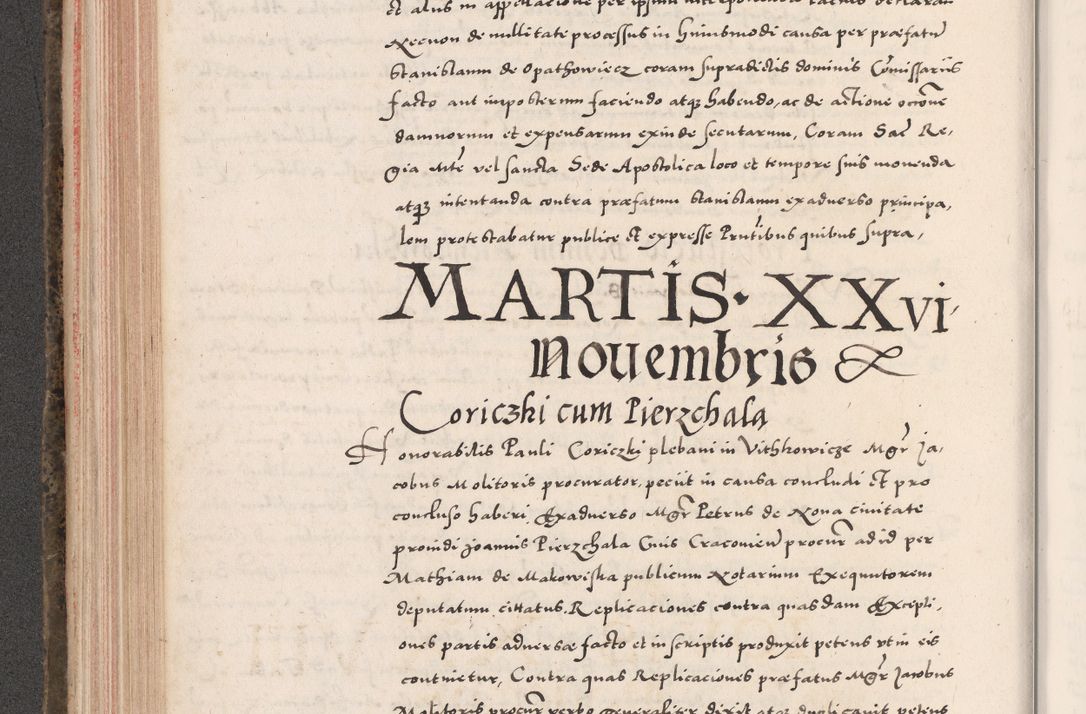 et alius in appellacione per ipsum interponenda latius declarari
Necnon de nullitate processus in huiusmodi causa per præfatũ
Stanislaum de Opathowiecz coram supradictis dominis Comissariis
facto aut imposterum faciendo atq3 habendo, ac de actione occõne
damnorum et expensarum exinde secutarum, Coram Sac̃ Re,
gia Mte vel sancta Sede Apostolica loco et tempore suis monenda
atq3 intentanda contra præfatum Stanislaum ex adverso principa,
lem protestabatur publice et expresse Pñtibus quibus supra,
MARTIS · XXvi·
Nouembris
Coriczki cum Pierzchalą
Honorabilis Pauli Coriczki plebani in Vithkowicze Mgr̃ Ja,
cobus Molitoris procurator, peciit in causa concludi et pro
concluso haberi, Exadverso Mgr̃ Petrus de Nova civitate
providi Joannis Pierzchala Civis Cracovieñ procur̃ ad id per
Mathiam de Makowiska publicum Notarium Exequutorem
deputatum citatus, Replicaciones contra quasdam Excepti,
ones partis adversæ facto et in scriptis produxit petens vt in eis
continetur, Contra quas Replicaciones præfatus Mgr̃ Jacobus
Molitoris procur̃ verbo generaliter dixit atq3 duplicavit petens